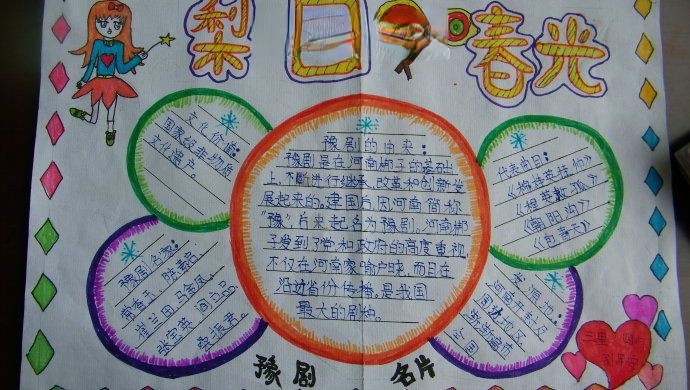 梨园春光
文化价值：
国家级非物质
文化遗产。
豫剧的由来：
豫剧是在河南梆子的基础
上，不断进行继承、改革和创新发
展起来的。建国后因河南简称
"豫"后来起名为豫剧。河南梆
子受到了党和政府的高度重视，
不仅在河南家喻户晓，而且在
沿边省份传播，是我国
最大的剧种。
代表曲目：
《穆桂英挂帅》
《朝阳沟》
《包青天》
豫剧名家：
常香玉、陈素真、
崔兰田、马金凤、
张宝英
发源地：
河南开封及
周边地区
全国
豫剧 名片